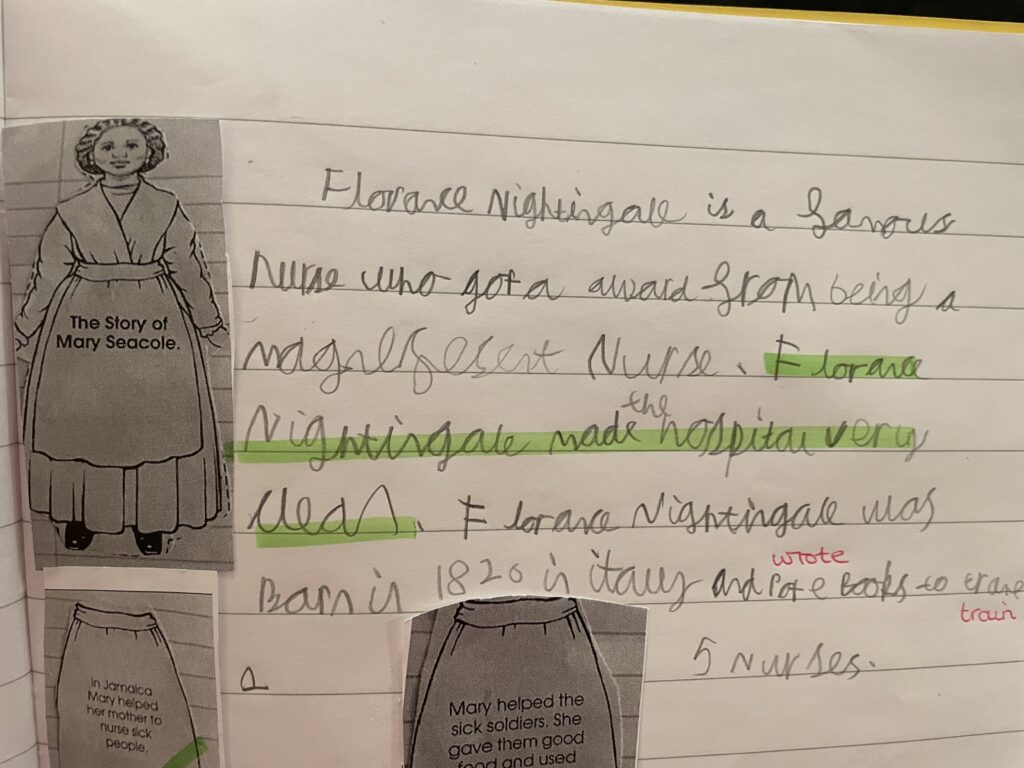 Florance Nightingale is a famous
Nurse who got a award from being a
magnefesent Nurse. Florance
the
Nightingale made hospital very
clean. Florance Nightingale was
wrote
Barn in 1820 in itauy and Rote Books to trane
train
5 Nurses.
a
The Story of
Mary Seacole.
In Jamaica
Mary helped
her mother to
nurse sick
people.
Mary helped the
sick soldiers. She
gave them good
food and used